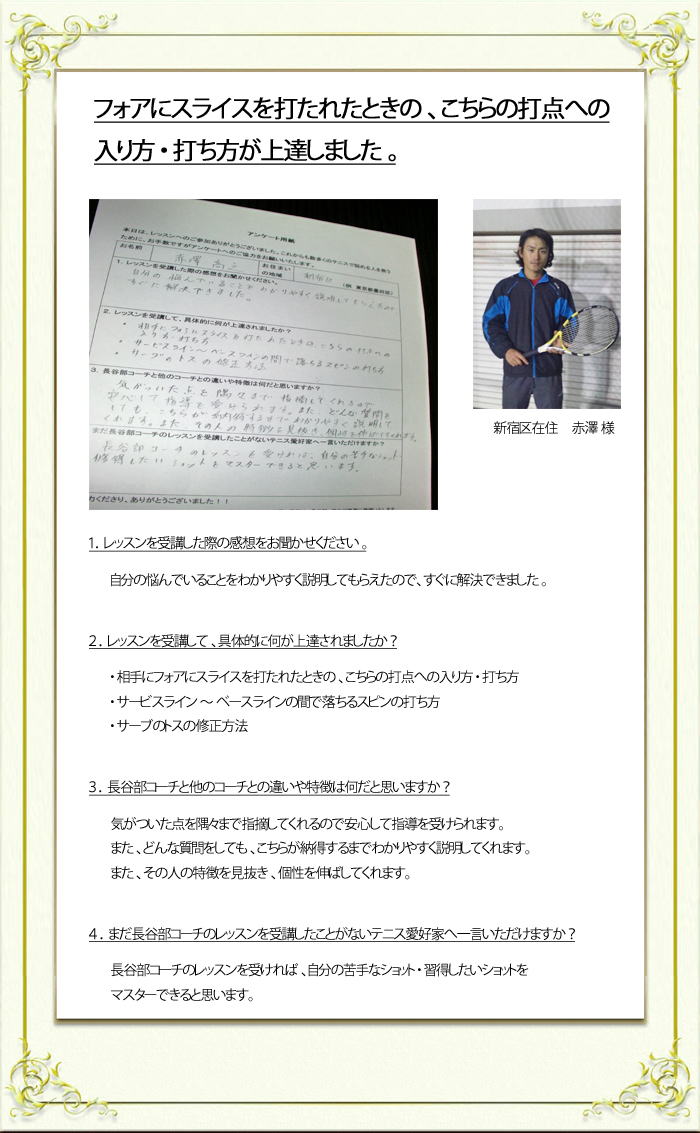 フォアにスライスを打たれたときの、こちらの打点への
入り方・打ち方が上達しました。
アンケート用紙
本日は、レッスンへのご参加ありがとうございました。これからも数多くのテニスで悩める人を救う
ために、お手数ですがアンケートへのご協力をお願いいたします。
お名前
お住まい
の地域
(例. 東京都豊島区)
1. レッスンを受講した際の感想をお聞かせください。
自分の悩んでいることをわかりやすく説明してもらえたので
すぐに解決できました。
2. レッスンを受講して、具体的に何が上達されましたか?
・相手にフォアにスライスを打たれたときの、こちらの打点への
入り方・打ち方
・サービスライン～ベースラインの間で落ちるスピンの打ち方
・サーブのトスの修正方法
3. 長谷部コーチと他のコーチとの違いや特徴は何だと思いますか?
気がついた点を隅々まで指摘してくれるので
安心して指導を受けられます。また、どんな質問を
しても、こちらが納得するまでわかりやすく説明して
くれます。また、その人の特徴を見抜き、個性を伸ばしてくれます。
まだ長谷部コーチのレッスンを受講したことがないテニス愛好家へ一言いただけますか?
長谷部コーチのレッスンを受ければ、自分の苦手なショット・
習得したいショットをマスターできると思います。
力くださり、ありがとうございました!!
新宿区在住 赤澤 様
1. レッスンを受講した際の感想をお聞かせください。
自分の悩んでいることをわかりやすく説明してもらえたので、すぐに解決できました。
2. レッスンを受講して、具体的に何が上達されましたか?
・相手にフォアにスライスを打たれたときの、こちらの打点への入り方・打ち方
・サービスライン ～ ベースラインの間で落ちるスピンの打ち方
・サーブのトスの修正方法
3. 長谷部コーチと他のコーチとの違いや特徴は何だと思いますか?
気がついた点を隅々まで指摘してくれるので安心して指導を受けられます。
また、どんな質問をしても、こちらが納得するまでわかりやすく説明してくれます。
また、その人の特徴を見抜き、個性を伸ばしてくれます。
4. まだ長谷部コーチのレッスンを受講したことがないテニス愛好家へ一言いただけますか?
長谷部コーチのレッスンを受ければ、自分の苦手なショット・習得したいショットを
マスターできると思います。